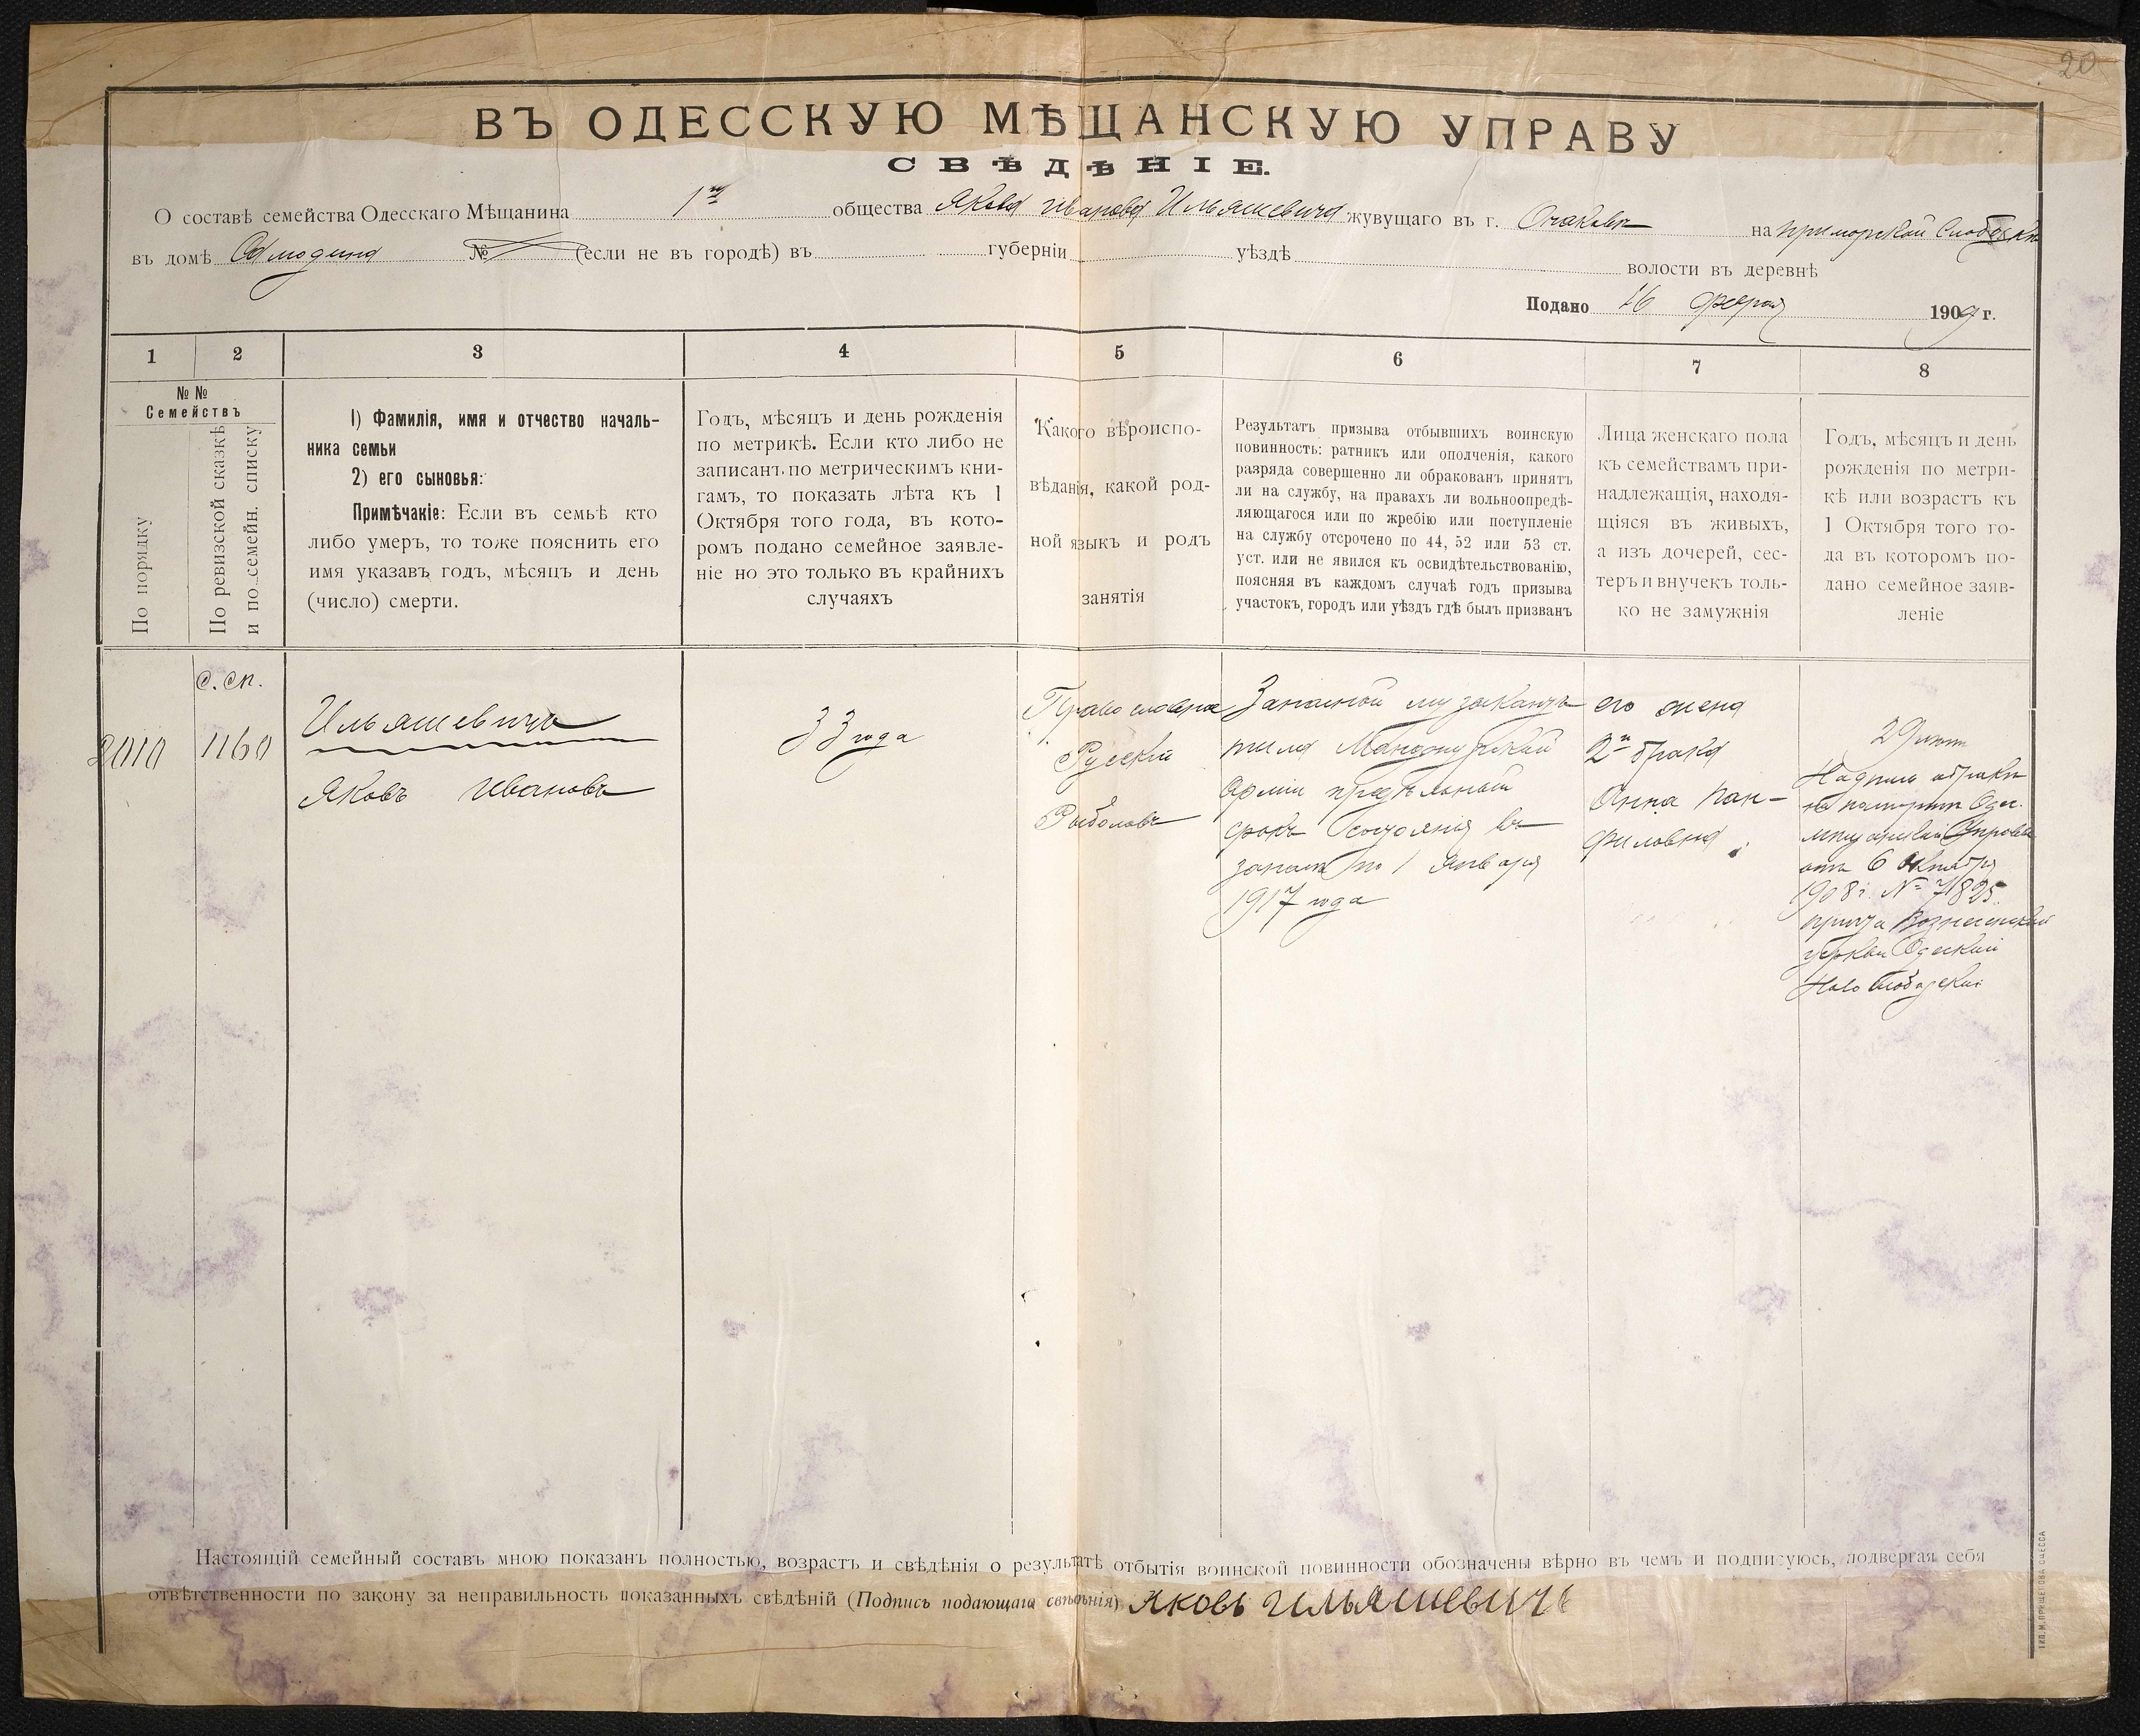 20
ВЪ ОДЕССКУЮ МѢЩАНСКУЮ УПРАВУ
СВѢДѢНІЕ.
О составѣ семейства Одесскаго Мѣщанина 1го общества Якова Иванова Ильяшевича жувущаго въ г. Очаковѣ на приморской Слободкѣ
въ домѣ № (если не въ городѣ) въ губерніи уѣздѣ волости въ деревнѣ
Подано 16 феврал 1909 г.
1 2 3 4 5 6 7 8
№ №
Семействъ
По порядку
По ревизской сказкѣ
и по семейн. списку
1) Фамилія, имя и отчество началь-
ника семьи
2) его сыновья:
Примѣчакіе: Если въ семьѣ кто
либо умеръ, то тоже пояснить его
имя указавъ годъ, мѣсяцъ и день
(число) смерти.
Годъ, мѣсяцъ и день рожденія
по метрикѣ. Если кто либо не
записанъ по метрическимъ кни-
гамъ, то показать лѣта къ 1
Октября того года, въ кото-
ромъ подано семейное заявле-
ніе но это только въ крайнихъ
случаяхъ
Какого вѣроиспо-
вѣданія, какой род-
ной языкъ и родъ
занятія
Результатъ призыва отбывшихъ воинскую
повинность: ратник или ополченія, какого
разряда совершенно ли обракован принятъ
ли на службу, на правахъ ли вольноопредѣ-
ляющагося или по жребію или поступленіе
на службу отсрочено по 44, 52 или 53 ст.
уст. или не явился къ освидѣтельствованію,
поясняя въ каждомъ случаѣ годъ призыва
участокъ, городъ или уѣздъ гдѣ былъ призванъ
Лица женскаго пола
къ семействамъ при-
надлежащія, находя-
щіяся въ живыхъ,
а изъ дочерей, сес-
теръ и внучекъ толь-
ко не замужнія
Годъ, мѣсяцъ и день
рожденія по метри-
кѣ или возрастъ къ
1 Октября того го-
да въ которомъ по-
дано семейное заяв-
леніе
2010
с. сп.
1160
Ильяшевичъ
Яковъ Ивановъ
33 года
Православна
Русскій
Рыболовъ
Запасной музыкантъ
тыла Манджурской
арміи предѣльный
срокъ состоянія въ
запасѣ по 1 Января
1917 года
его жена
2го брака
Анна Пан-
филовна
29 лѣтъ
Надпись о бракѣ
на паспортѣ Одес.
мѣщанской Управы
отъ 6 Октября
1908 г. № 7825
причта Вознесенской
церкви Одесской
Ново Слободской
Настоящій семейный составъ мною показанъ полностью, возрастъ и свѣдѣнія о результатѣ отбытія воинской повинности обозначены вѣрно въ чемъ и подписуюсь, подвергая себя
отвѣтственности по закону за неправильность показанныхъ свѣдѣній (Подпись подающаго свѣдѣнія) Яковъ Ильяшевичъ
ТИП. М. ПРИЩЕПОВА ОДЕССА